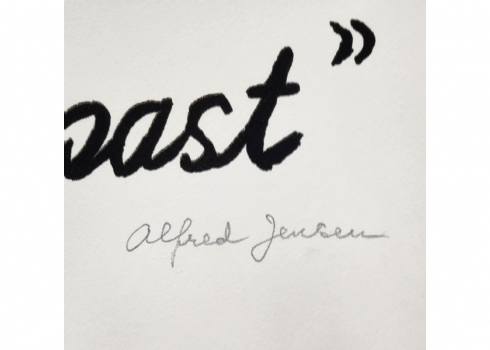 past”
Alfred Jensen